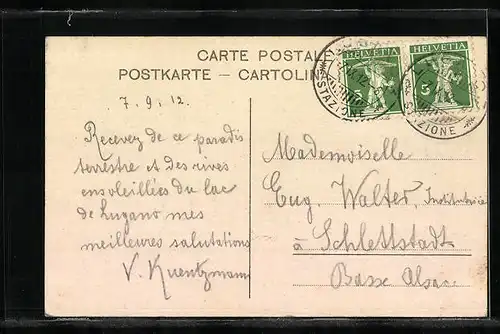 CARTE POSTALE
POSTKARTE — CARTOLINA
HELVETIA
5
HELVETIA
5
STAZIONE
STAZIONE
7.9.12.
Recevez de ce paradis
terrestre et des rives
ensoleillées du lac
de Lugano mes
meilleures salutations
V. Kuentzmann
Mademoiselle
Eug. Walter, Institutrice
à Schlettstadt
Basse Alsace